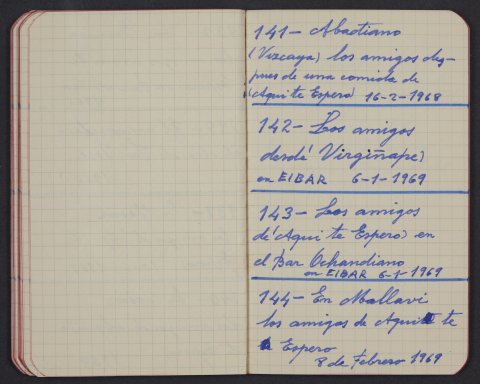 141 - Abadiano
(Vizcaya) los amigos des-
pues de una comida de
(Aqui te Espero) 16-2-1968
142 - Los amigos
desde' Virgiñape)
en EIBAR 6-1-1969
143 - Los amigos
de' (Aqui te Espero) en
el Bar Ochandiano
en EIBAR 6-1-1969
144 - En Mallavi
los amigos de Aqui te
Espero
8 de Febrero 1969